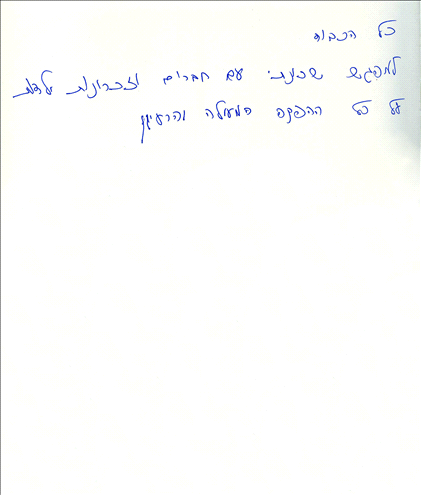 כל הכבוד
למפגש שכונתי עם חברים וזכרונות ילדות
על כל ההפקה המעולה והרעיון